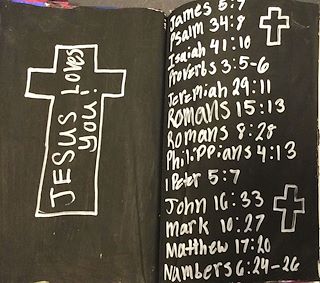 JESUS Loves
you!
James 5:7
Psalm 34:8
Isaiah 41:10
Proverbs 3:5-6
Jeremiah 29:11
Romans 15:13
Romans 8:28
Philippians 4:13
1 Peter 5:7
John 16:33
Mark 10:27
Matthew 17:20
Numbers 6:24-26